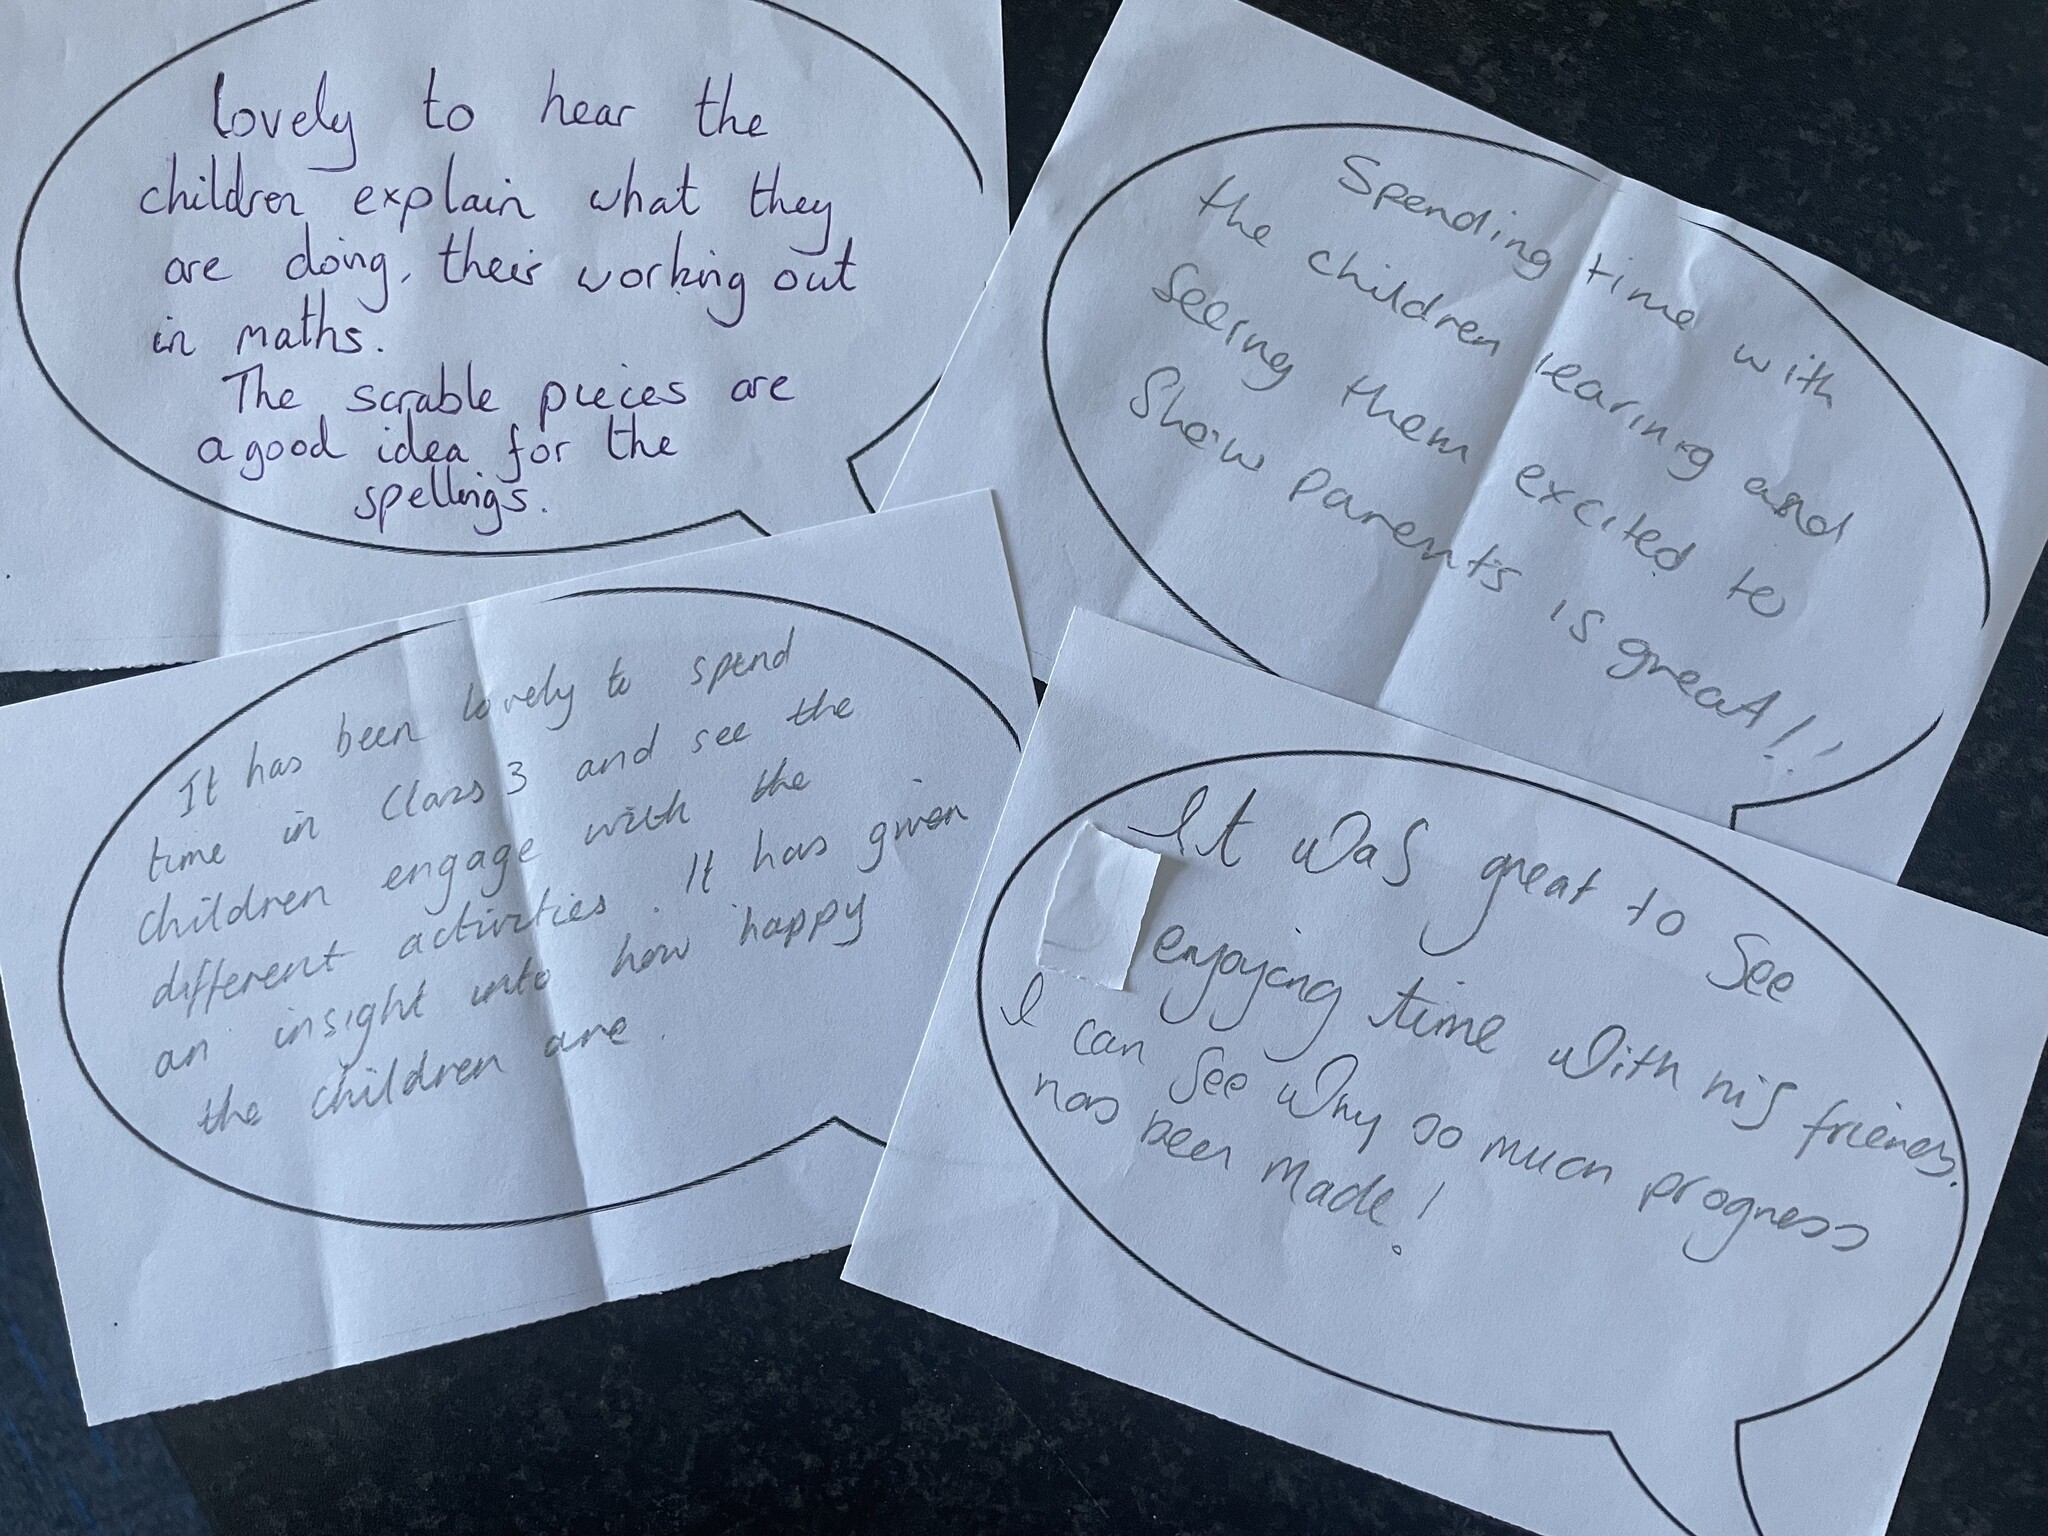 lovely to hear the
children explain what they
are doing, their working out
in maths.
The scrable pieces are
a good idea for the
spellings.
Spending time with
the children learing and
seeing them excited to
show parents is great!!
It has been lovely to spend
time in Class 3 and see the
children engage with the
different activities. It has given
an insight into how happy
the children are.
It was great to see
enjoying time with his friends.
I can see why so much progress
has been made!